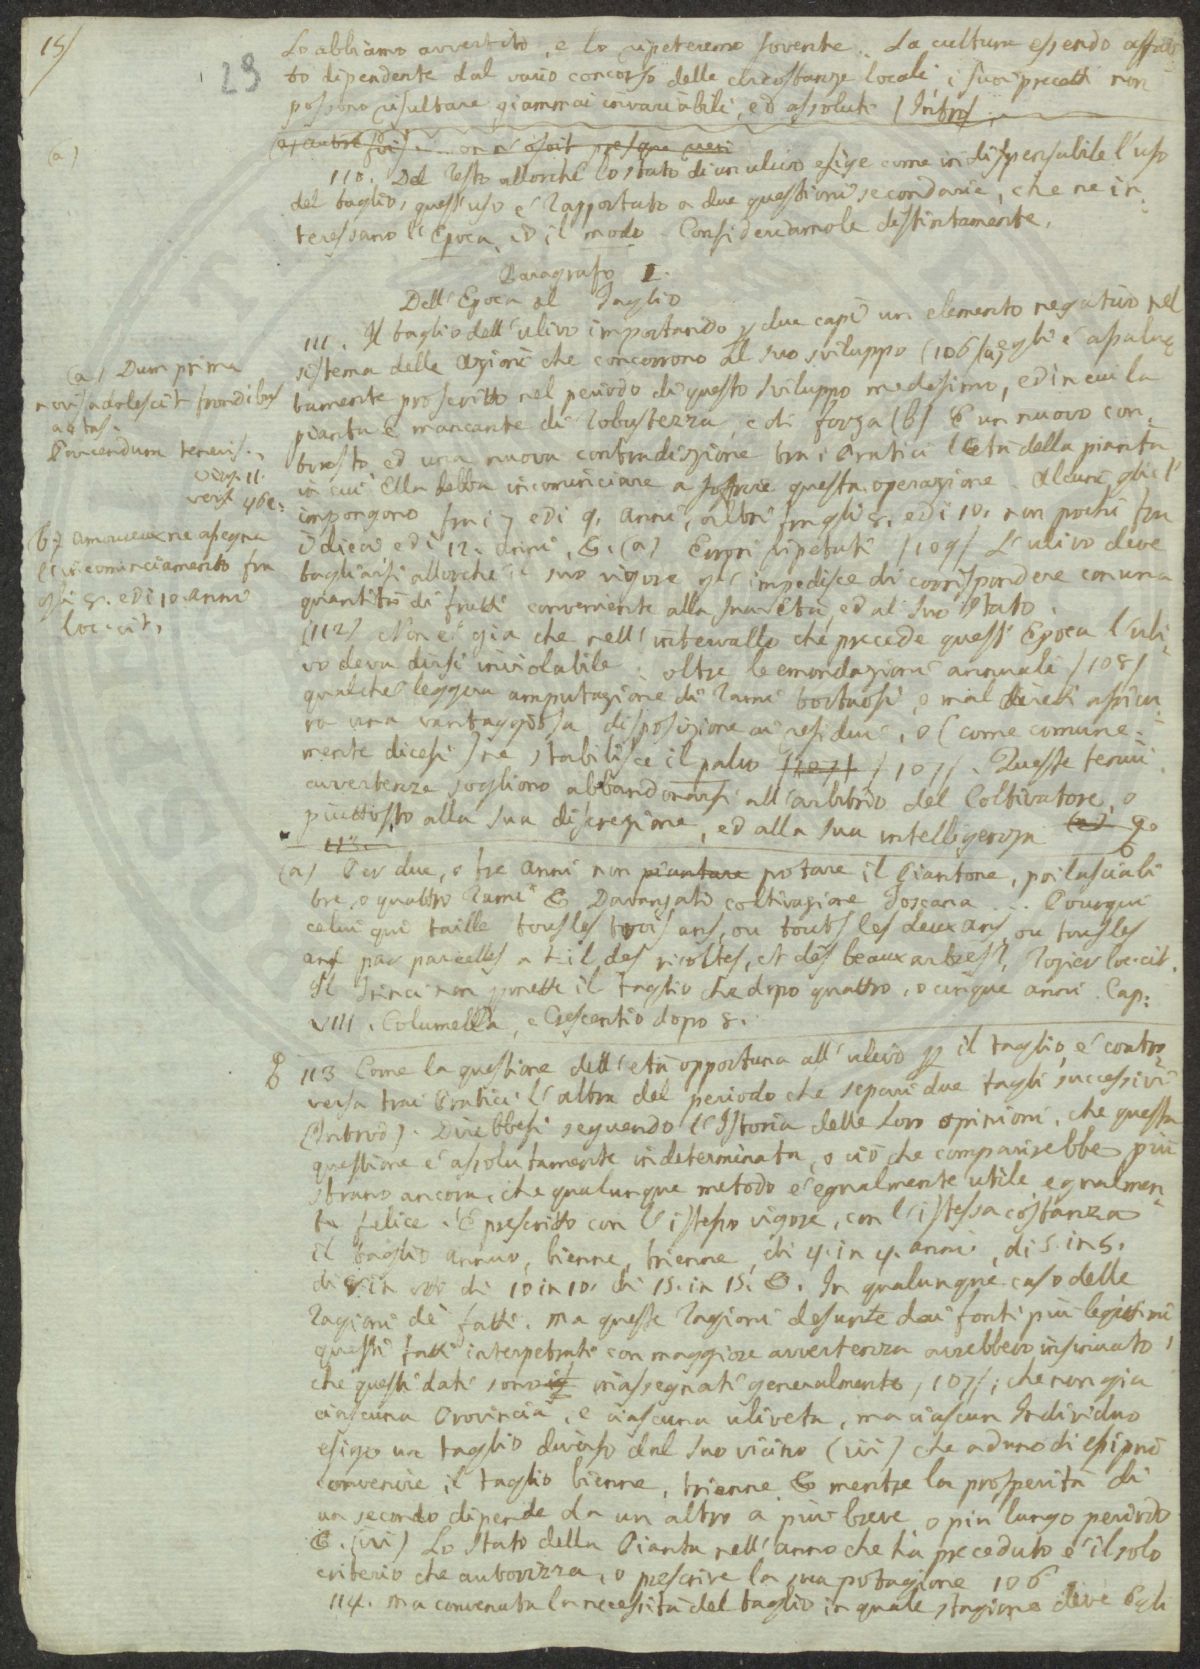 15/
29
Lo abbiamo avvertito, e lo ripeteremo sovente. La cultura essendo affat=
to dipendente dal vario concorso delle circostanze locali i suoi precetti non
possono risultare giammai invariabili, ed assoluti (Introd
(a) autre fois on n'osoit presque
(a)
110. Del resto allorché lo stato di un ulivo esige come indispensabile l'uso
del taglio, quest'uso é rapportato a due questioni secondarie, che ne in=
teressano l'Epoca, ed il modo. Consideriamole distintamente.
Paragrafo I.
Dell'Epoca al Taglio
111. Il taglio dell'ulivo importando p due capi un elemento negativo nel
sistema delle azioni che concorrono al suo sviluppo (106/(a) egli é assolu=
tamente proscritto nel periodo di questo sviluppo medesimo, ed in cui la
pianta é mancante di robustezza, e di forza (b) E un nuovo con=
trasto, ed una nuova contradizione tra i Pratici l'Età della pianta
in cui Ella debba incominciare a soffrire questa operazione. Alcuni gliel'
impongono fra i 7 ed i 9. anni, altri fra gli 8. ed i 10. non pochi fra
i dieci ed i 12. anni, &. (a) Eorpri ripetuti /109/ L'ulivo deve
tagliarsi allorché il suo vigore gl'impedisce di corrispondere con una
quantità di frutti conveniente alla sua Età, ed al suo stato.
(a) Dum prima
novis adolescit frondibus
aetas.
Parcendum teneris.
Virg. 11.
vers. 40
(b) Amoureux ne assegna
l'incominciamento fra
gli 8. ed i 10. anni
loc. cit.
(112) Non é già che nell'intervallo che precede quest'Epoca l'uli=
vo deva dirsi inviolabile: oltre le emondazioni annuali /108/
qualche leggera amputazione di rami tortuosi, o mal diretti assicu=
ra una vantaggiosa disposizione ai residui, o (come comune=
mente dicesi) ne stabilisce il palco /107/ /107/. Queste tenui
avvertenze sogliono abbandonarsi all'arbitrio del Coltivatore, o
piuttosto alla sua discrezione, ed alla sua intelligenza (a)
113.
(a) Per due, o tre anni non piantare potare il Piantone, poi lasciali
tre, o quattro rami & Davanzati coltivazione Toscana... Pourquoi
celui qui taille tous les trois ans, ou touts les deux ans, ou tous les
ans par parcelles a t il des ricoltes, et dès beaux arbres?, Rozier loc. cit.
Il Trinci non pmette il taglio che dopo quattro, o cinque anni. Cap:
VIII. Columella, e Crescentio dopo 8.
113 Come la questione dell'età opportuna all'ulivo p il taglio, é contro=
versa trai Pratici l'altra del periodo che separi due tagli successivi
(Introd). Direbbesi seguendo l'Istoria delle loro opinioni, che questa
questione é assolutamente indeterminata, o ciò che comparirebbe più
strano ancora, che qualunque metodo é egualmente utile, egualmen=
te felice. É prescritto con l'istesso vigore, con l'istessa costanza
il taglio annuo, bienne, trienne, di 4. in 4. anni, di 5. in 5.
di 8. in 8. di 10 in 10. di 15. in 15. &. In qualunque caso delle
ragioni dè fatti. Ma queste ragioni desunte dai fonti più legittimi
questi fatti interpetrati con maggiore avvertenza avrebbero insinuato,
che questi dati sono inassegnati generalmente, 107/; che non già
ciascuna Provincia, e ciascuna uliveta, ma ciascun Individuo
esige un taglio diverso dal suo vicino (ivi) che ad uno di essi può
convenire il taglio bienne, trienne & mentre la prosperità di
un secondo dipende da un altro a più breve o più lungo periodo
&. (ivi) Lo stato della Pianta nell'anno che ha preceduto é il solo
criterio che autorizza, o prescrive la sua potagione 106
114. Ma convenuta la necessità del taglio in quale stagione deve Egli